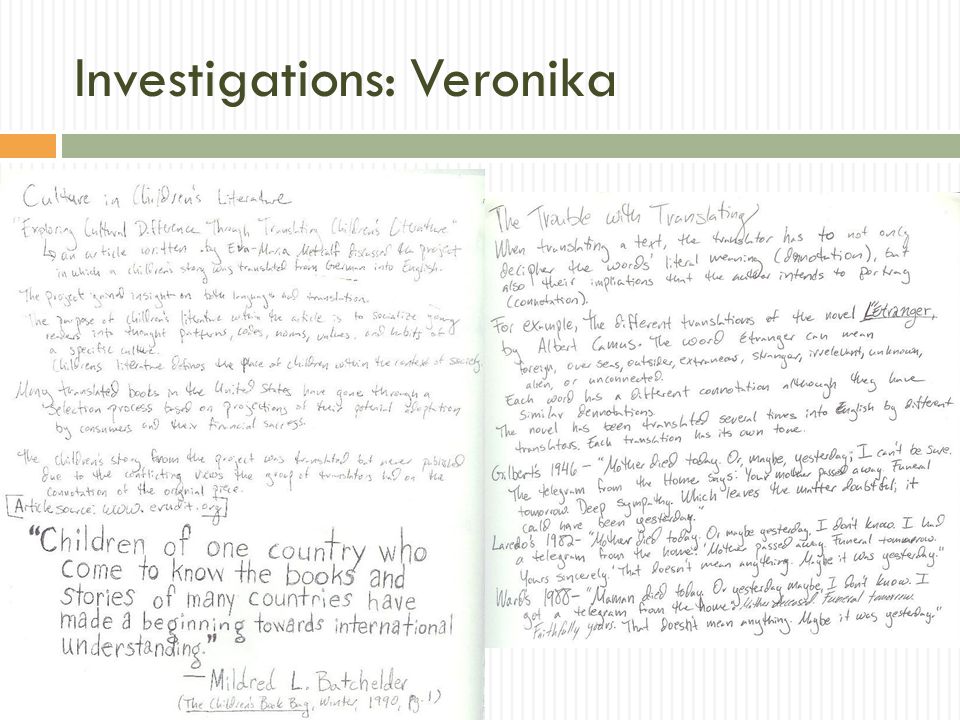 Investigations: Veronika
Culture in Children's Literature
"Exploring Cultural Difference Through Translating Children's Literature"
↳ an article written by Eva-Maria Metcalf discussed the project
in which a children's story was translated from German into English.
The project gained insight on both language and translation.
The purpose of children's literature within the article is to socialize young
readers into thought patterns, codes, norms, values, and habits of
a specific culture.
Childrens literature defines the place of children within the context of society.
Many translated books in the United States have gone through a
selection process based on projections of their potential adaptation
by consumers and their financial success.
The children's story from the project was translated but never published
due to the conflicting views the group of translators had on the
connotation of the original piece.
Article source: www.erudit.org
"Children of one country who
come to know the books and
stories of many countries have
made a beginning towards international
understanding."
— Mildred L. Batchelder
(The Children's Book Bag, Winter, 1990, pg.1)
The Trouble with Translating
When translating a text, the translator has to not only
decipher the words' literal meaning (denotation), but
also their implications that the author intends to portray
(connotation).
For example, the different translations of the novel L'Etranger,
by Albert Camus. The word Etranger can mean
foreign, over seas, outsider, extraneous, stranger, irrelevant, unknown,
alien, or unconnected.
Each word has a different connotation although they have
similar dennotations.
The novel has been translated several times into English by different
translators. Each translation has its own tone.
Gilbert's 1946 - "Mother died today. Or, maybe, yesterday; I can't be sure.
The telegram from the Home says: Your mother passed away. Funeral
tomorrow. Deep sympathy. Which leaves the matter doubtful; it
could have been yesterday."
Laredo's 1982 - "Mother died today. Or maybe yesterday, I don't know. I had
a telegram from the home: 'Mother passed away. Funeral tomorrow.
Yours sincerely.' That doesn't mean anything. Maybe it was yesterday."
Ward's 1988 - "Maman died today. Or yesterday maybe, I don't know. I
got a telegram from the home: Mother deceased. Funeral tomorrow.
Faithfully yours. That doesn't mean anything. Maybe it was yesterday."